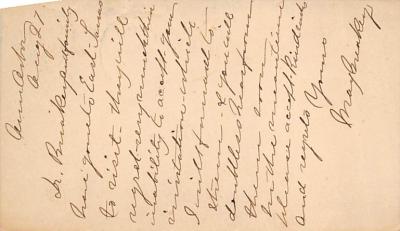 Ann Arbor
Aug 27.
Dr. Brinkley and family
have gone to East
to visit. They will
regret very much their
inability to accept your
invitation which
I will forward to
them. & you will
doubtless hear from
them soon.
In the meantime
please accept kindest
and regrets Yours